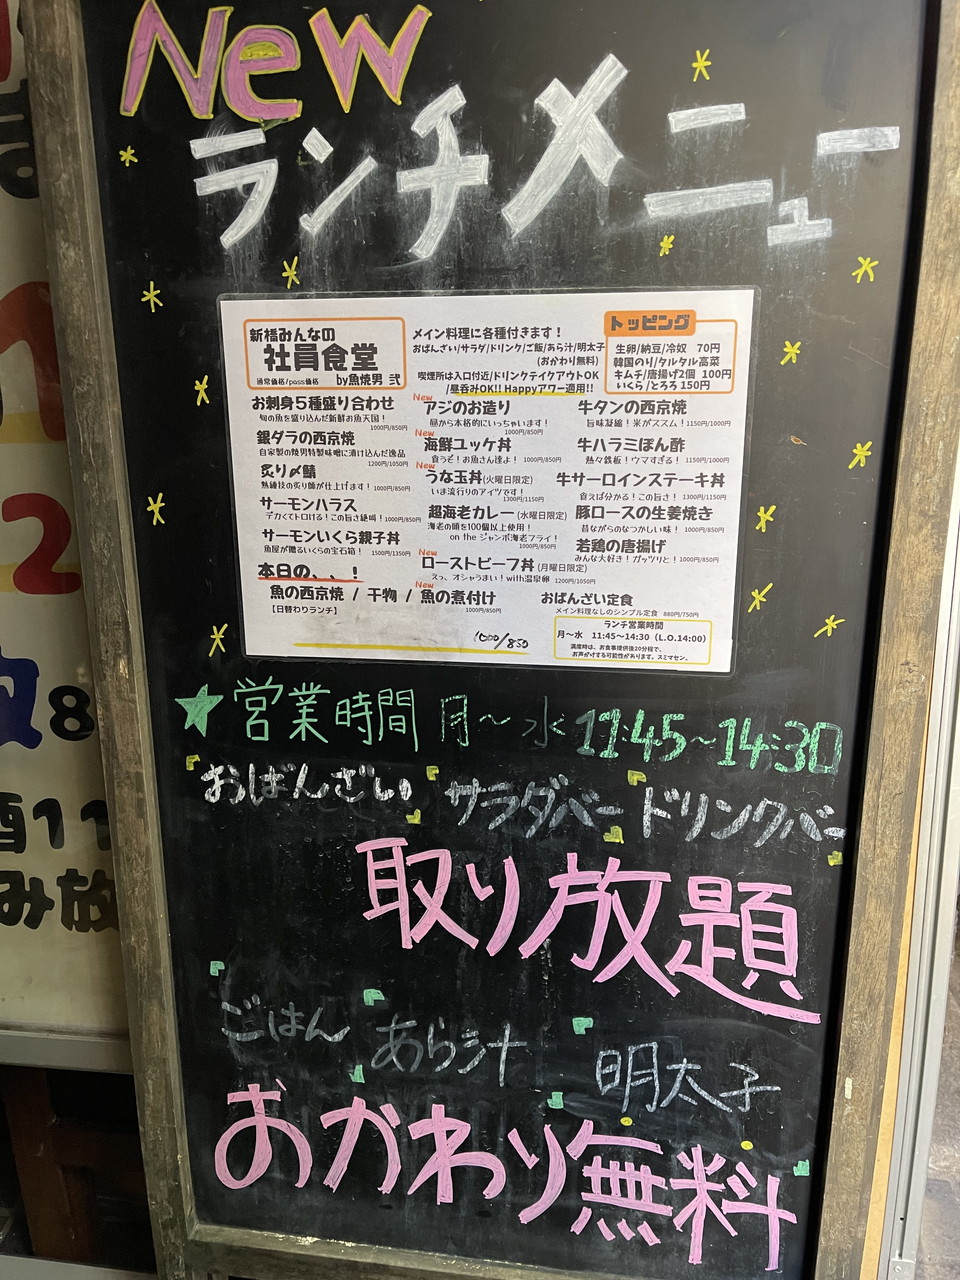 New
ランチメニュー
新橋みんなの
社員食堂
通常価格/pass価格 by魚焼男 弐
メイン料理に各種付きます！
おばんざい/サラダ/ドリンク/ご飯/あら汁/明太子
(おかわり無料)
喫煙所は入口付近/ドリンクテイクアウトOK
/昼呑みOK!! Happyアワー適用!!
トッピング
生卵/納豆/冷奴 70円
韓国のり/タルタル高菜
キムチ/唐揚げ2個 100円
いくら/とろろ 150円
お刺身５種盛り合わせ
旬の魚を盛り込んだ新鮮お魚天国！
1000円/850円
銀ダラの西京焼
自家製の焼男特製味噌に漬け込んだ逸品
1200円/1050円
炙り〆鯖
熟練技の炙り師が仕上げます！ 1000円/850円
サーモンハラス
デカくてトロける！この旨さ絶叫！ 1000円/850円
サーモンいくら親子丼
魚屋が贈るいくらの宝石箱！ 1500円/1350円
本日の、、！
魚の西京焼 / 干物 / New 魚の煮付け
【日替わりランチ】 1000円/850円
1000/850
New
アジのお造り
昼から本格的にいっちゃいます！
1000円/850円
New
海鮮ユッケ丼
食うぞ！お魚さん達よ！ 1000円/850円
New
うな玉丼(火曜日限定)
いま流行りのアイツです！
1300円/1150円
超海老カレー(水曜日限定)
海老の頭を100個以上使用！
on the ジャンボ海老フライ！
1000円/850円
New
ローストビーフ丼(月曜日限定)
スッ、オシャうまい！with温泉卵 1200円/1050円
牛タンの西京焼
旨味凝縮！米がススム！ 1150円/1000円
牛ハラミぽん酢
熱々鉄板！ウマすぎる！ 1150円/1000円
牛サーロインステーキ丼
食えば分かる！この旨さ！ 1300円/1150円
豚ロースの生姜焼き
昔ながらのなつかしい味！ 1000円/850円
若鶏の唐揚げ
みんな大好き！ガッツリと！ 1000円/850円
おばんざい定食
メイン料理なしのシンプル定食 880円/750円
ランチ営業時間
月〜水 11:45〜14:30（L.O.14:00）
満席時は、お食事提供後20分程で、
お声がけする可能性があります。スミマセン。
★営業時間 月〜水 11:45〜14:30
おばんざい サラダバー ドリンクバー
取り放題
ごはん あら汁 明太子
おかわり無料
2
8
酒11
み放